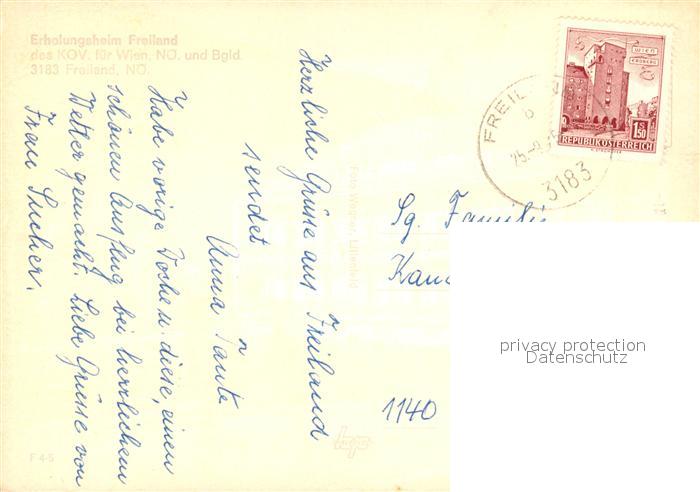 Erholungsheim Freiland
des KOV. für Wien, NÖ. und Bgld.
3183 Freiland, NÖ.
Herzliche Grüsse aus Freiland
sendet
Anna Tante
Habe vorige Wochen diese, einen
schönen Ausflug bei herrlichem
Wetter gemacht. Liebe Grüsse von
Frau Sucher.
Foto Wagner, Lilienfeld
F 4-5
WIEN
ERDBERG
1.50
REPUBLIK ÖSTERREICH
FREIL
3183
Sg. Familie
1140
privacy protection
Datenschutz